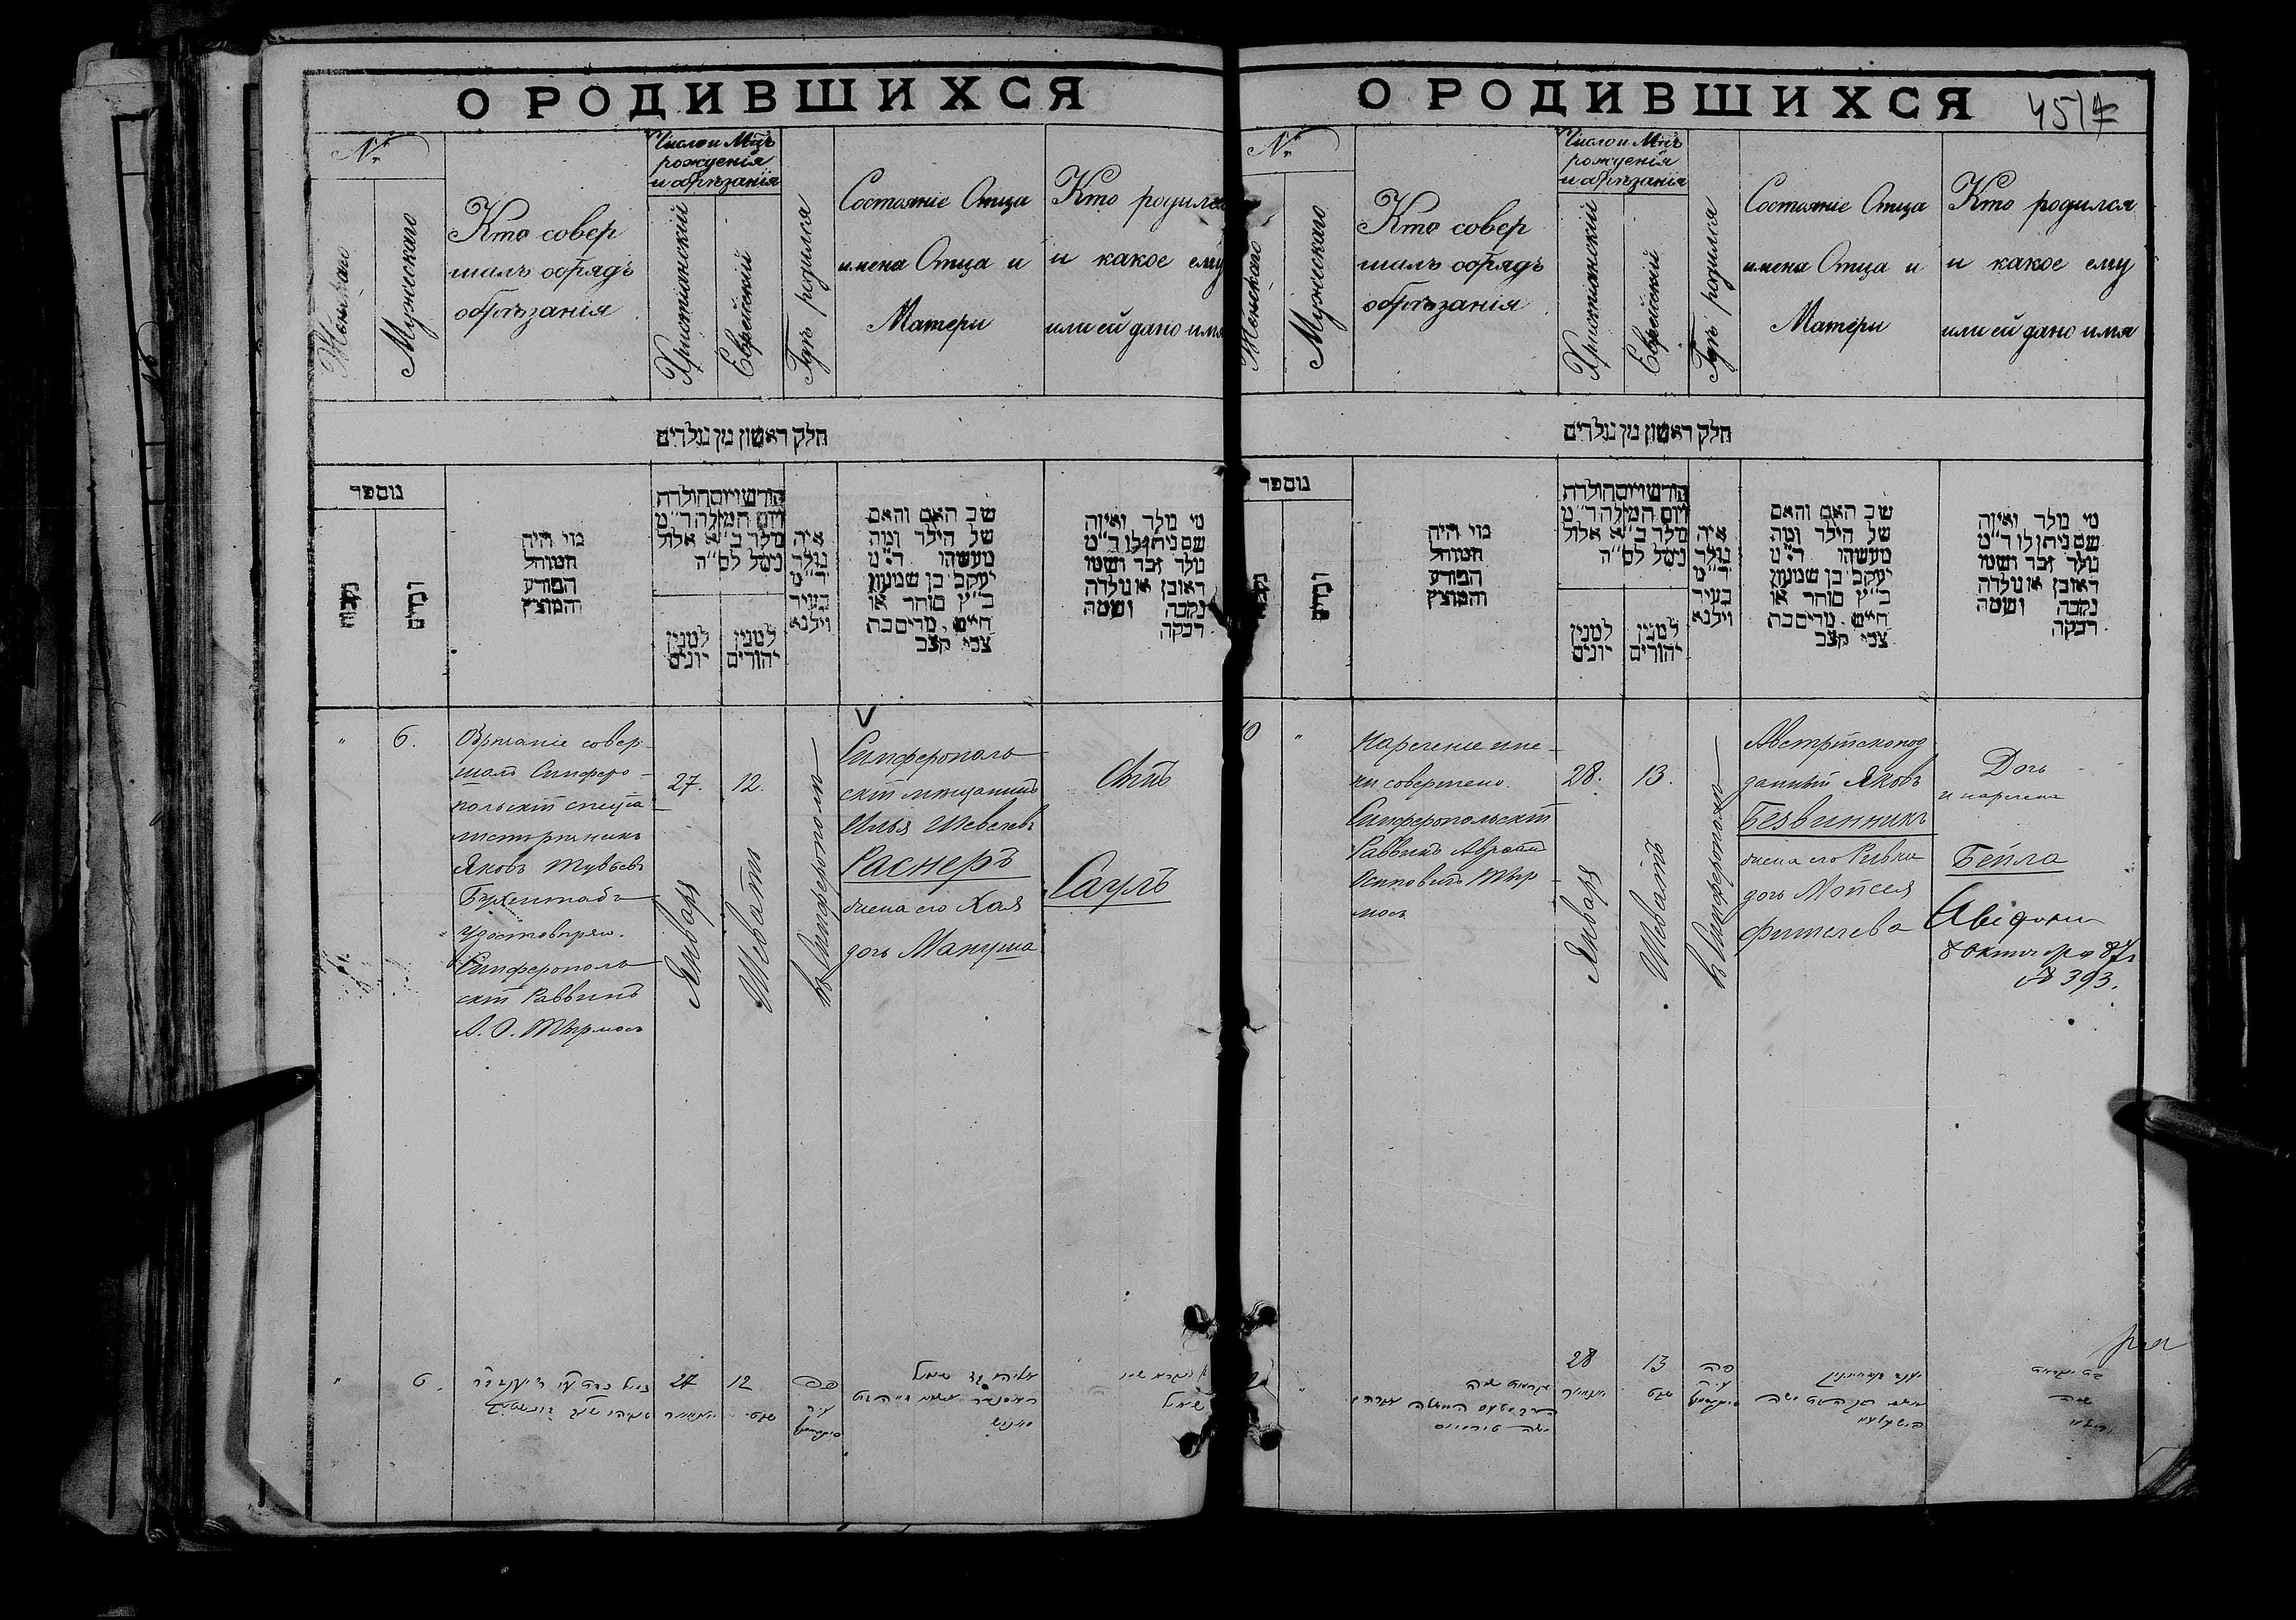 О РОДИВШИХСЯ
№
Женскаго
Мужескаго
Кто совер
шалъ обрядъ
обрѣзанія
Число и Мѣцъ
рожденія
и обрѣзанія
Христіянскій
Еврейскій
Гдѣ родился
Состояніе Отца
имена Отца и
Матери
Кто родился
и какое ему
или ей дано имя
חלק ראשון מן נולדים
מוספר
מי היה
המוהל
הפורע
והמוצץ
חודש ויום הולדת
ויום המילה ד״מ
נולד ב״א אלול
נימל לס״ה
למנין
יונים
למנין
יהודים
איה
נולד
ד״מ
בעיר
וילנא
שב האם והאם
של הילד ומה
מעשהו ד״מ
יעקב בן שמעון
כ״ץ סוחר או
חייט. מרים בת
צבי קצב
מי נולד ואיזה
שם ניתן לו ד״מ
נולד זכר ושמו
ראובן או נולדה
נקבה ושמה
רבקה
" 6.
Обрѣзаніе совер-
шалъ Симферо-
польскій спеціа-
листъ рѣзникъ
Яковъ Тувьевъ
Бухштабъ
удостовѣряю.
Симферополь
скій Раввинъ
А. О. Тырмосъ
27.
Января
12.
Шевать
въ Симферополѣ
V
Симферополь
скій мѣщанинъ
Илья Шевелевъ
Раснеръ
жена его Хая
дочь Мануша
Сынъ
Сауль
" 6.
27
12
О РОДИВШИХСЯ
45
№
Женскаго
Мужескаго
Кто совер
шалъ обрядъ
обрѣзанія
Число и Мѣцъ
рожденія
и обрѣзанія
Христіянскій
Еврейскій
Гдѣ родился
Состояніе Отца
имена Отца и
Матери
Кто родился
и какое ему
или ей дано имя
חלק ראשון מן נולדים
מוספר
מי היה
המוהל
הפורע
והמוצץ
חודש ויום הולדת
ויום המילה ד״מ
נולד ב״א אלול
נימל לס״ה
למנין
יונים
למנין
יהודים
איה
נולד
ד״מ
בעיר
וילנא
שב האם והאם
של הילד ומה
מעשהו ד״מ
יעקב בן שמעון
כ״ץ סוחר או
חייט. מרים בת
צבי קצב
מי נולד ואיזה
שם ניתן לו ד״מ
נולד זכר ושמו
ראובן או נולדה
נקבה ושמה
רבקה
10 "
Нареченіе име-
ни совершено.
Симферопольскій
Раввинъ Авраамъ
Осиповичъ Тыр
мосъ
28.
Января
13.
Шевать
въ Симферополѣ
Австрійскопод
данный Яковъ
Безвинникъ
жена его Ривка
дочь Мойсея
Фишелева
Дочь
и наречена
Бейла
8 Октября 87 г
№ 393.
28
13